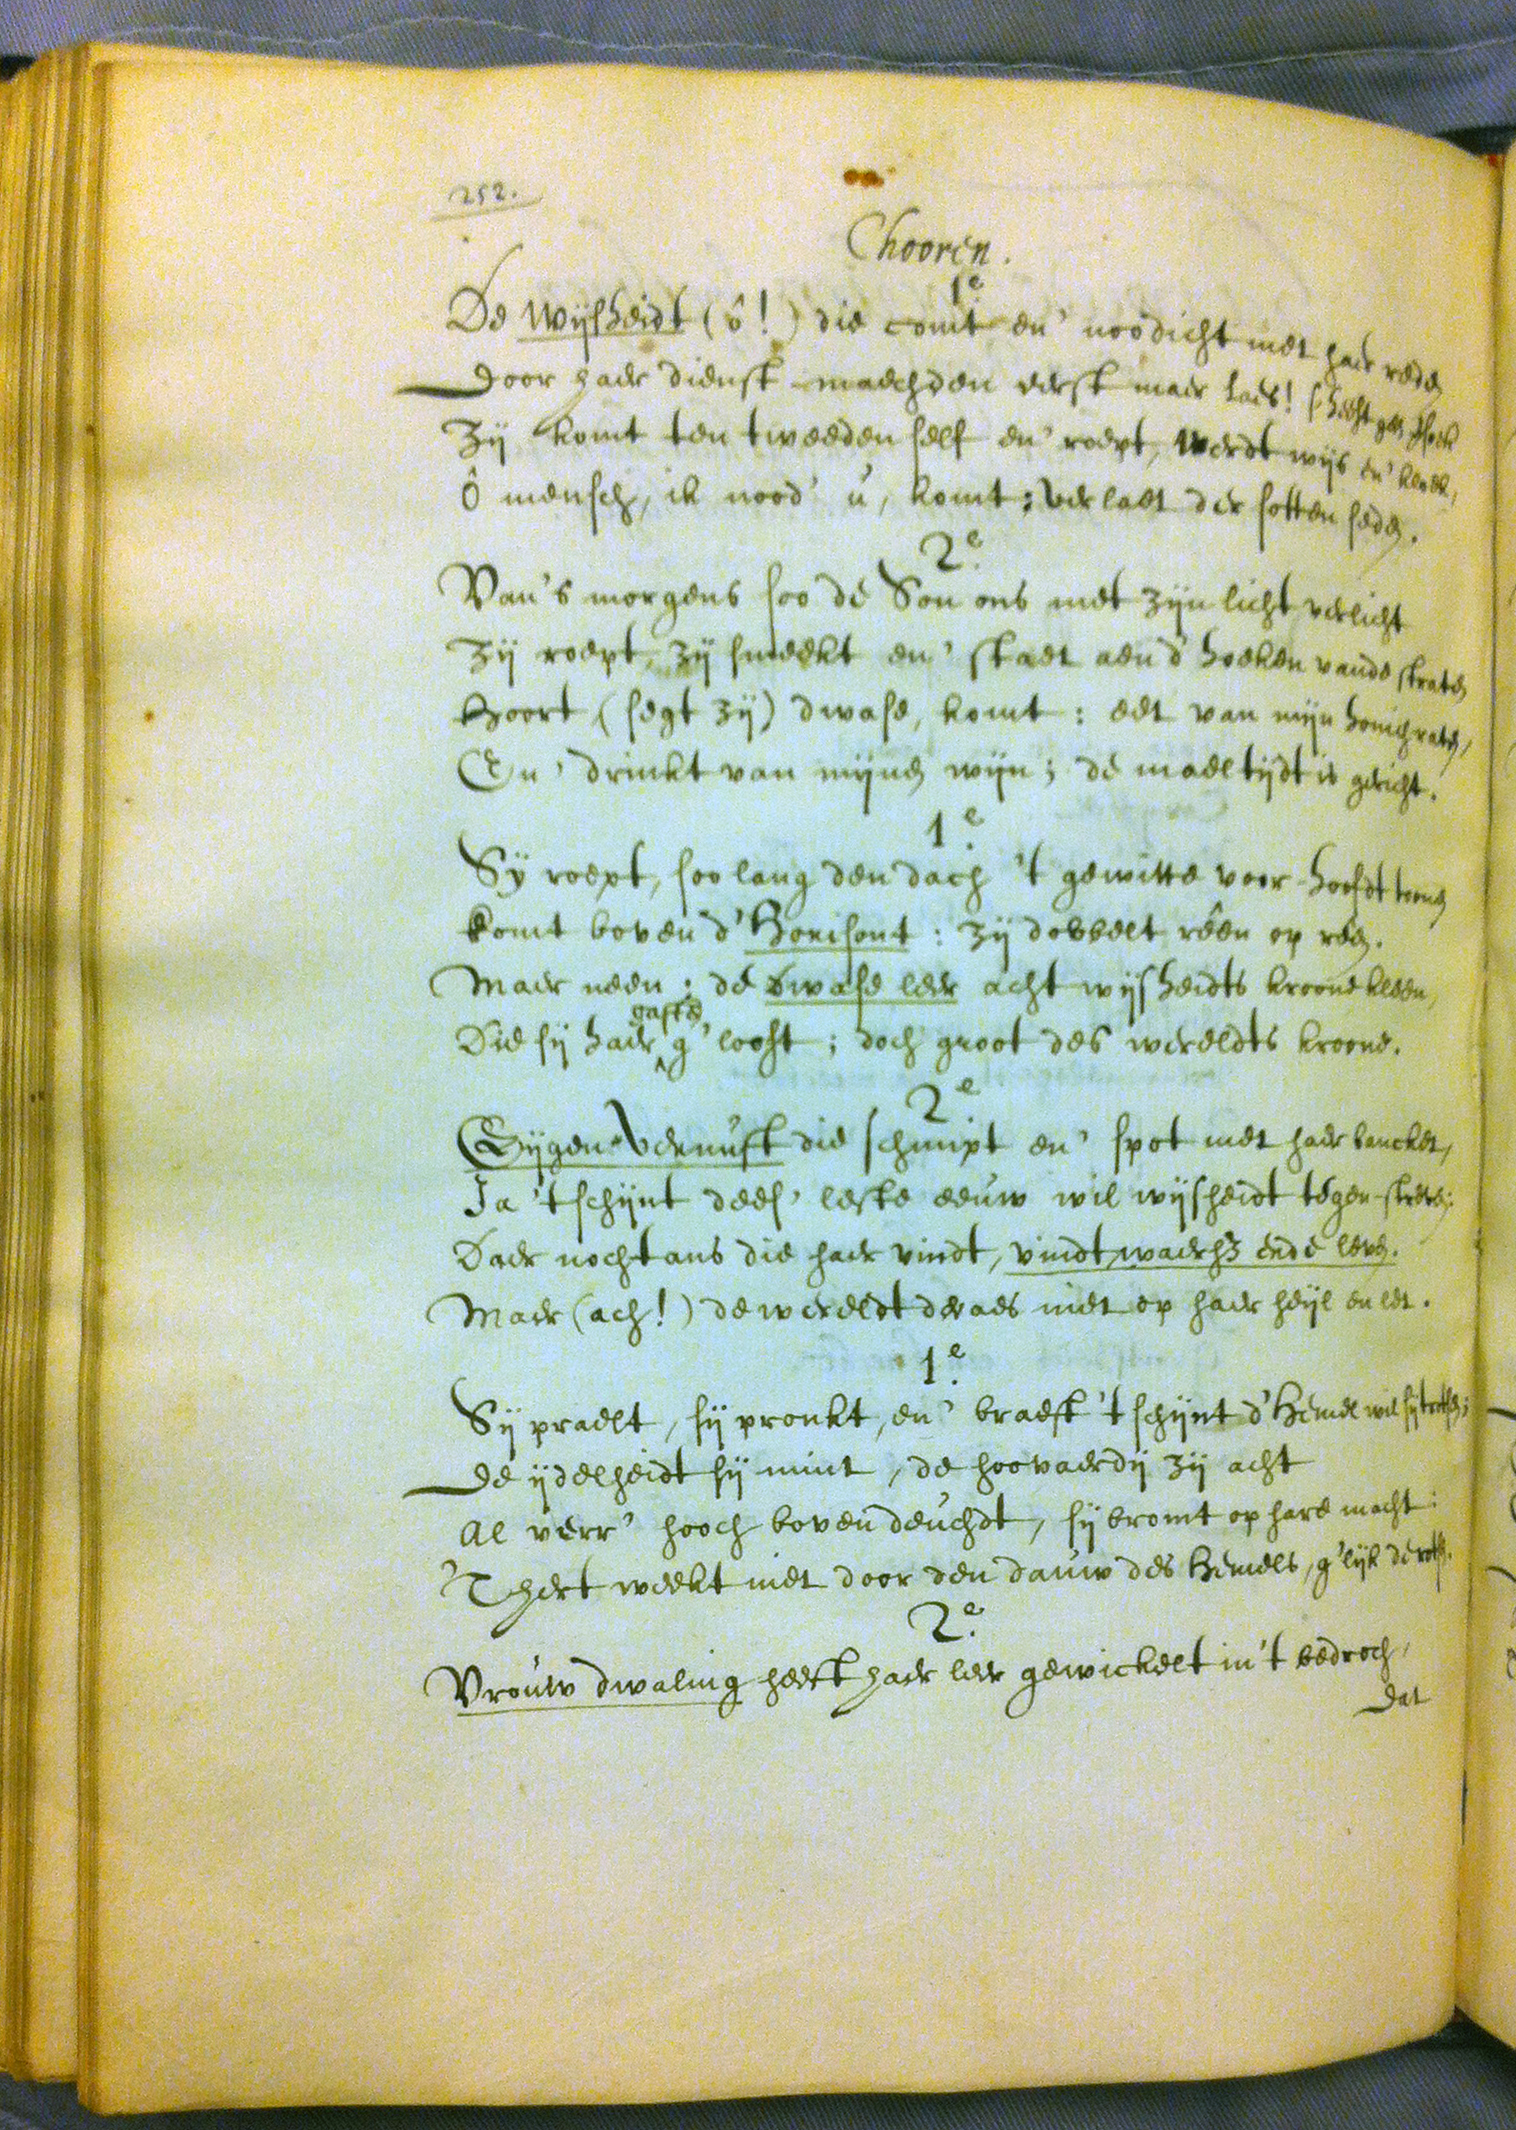 252.
Chooren.
1e.
De Wijsheidt (ô!) die comt en' noodicht met haer reden
Door haer dienst-maechden eerst maer laes! s'heeft geen
Zij komt ten tweeden self en' roept, Werdt wijs en' kloek,
Ô mensch, ik nood' u, komt: verlaet der sotten seden.
2e.
Van's morgens soo de Son ons met zijn licht verlicht
Zij roept, zij smeekt en' staet aen d'hoeken vande straten
Hoort (segt zij) dwase, komt: eet van mijn honichraten,
En' drinkt van mijnen wijn; de maeltijdt is gericht.
1e.
Sij roept, soo lang den dach 't gewitte voor-hooft toone
Komt boven d'Horisont: zij dobbelt rêen op rêen.
Maer neen: de Dwase leer acht wijsheidts kroone kleen,
Die sij haer gasten g'looft; doch groot des wereldts kroone.
2e.
Eijgen-Vernuft die schimpt en' spot met haer bancket,
Ja 't schijnt dees' leste eeuw wil wijsheidt tegen-streven:
Daer nochtans die haer vindt, vindt waerh3 ende leven.
Maer (ach!) de wereldt dwaes niet op haer heijl en let.
1e.
Sij praelt, sij pronkt, en' braest 't schijnt d'Hemel wil sij trotsen;
De ijdelheidt sij mint, de hoovaerdij zij acht
Al verr' hooch boven deuchdt, sij bromt op hare macht:
'T hert weekt niet door den dauw des Hemels, g'lijk de rotsen.
2e.
Vrouw dwaling heeft haer leer gewickelt in't bedroch,
Dat